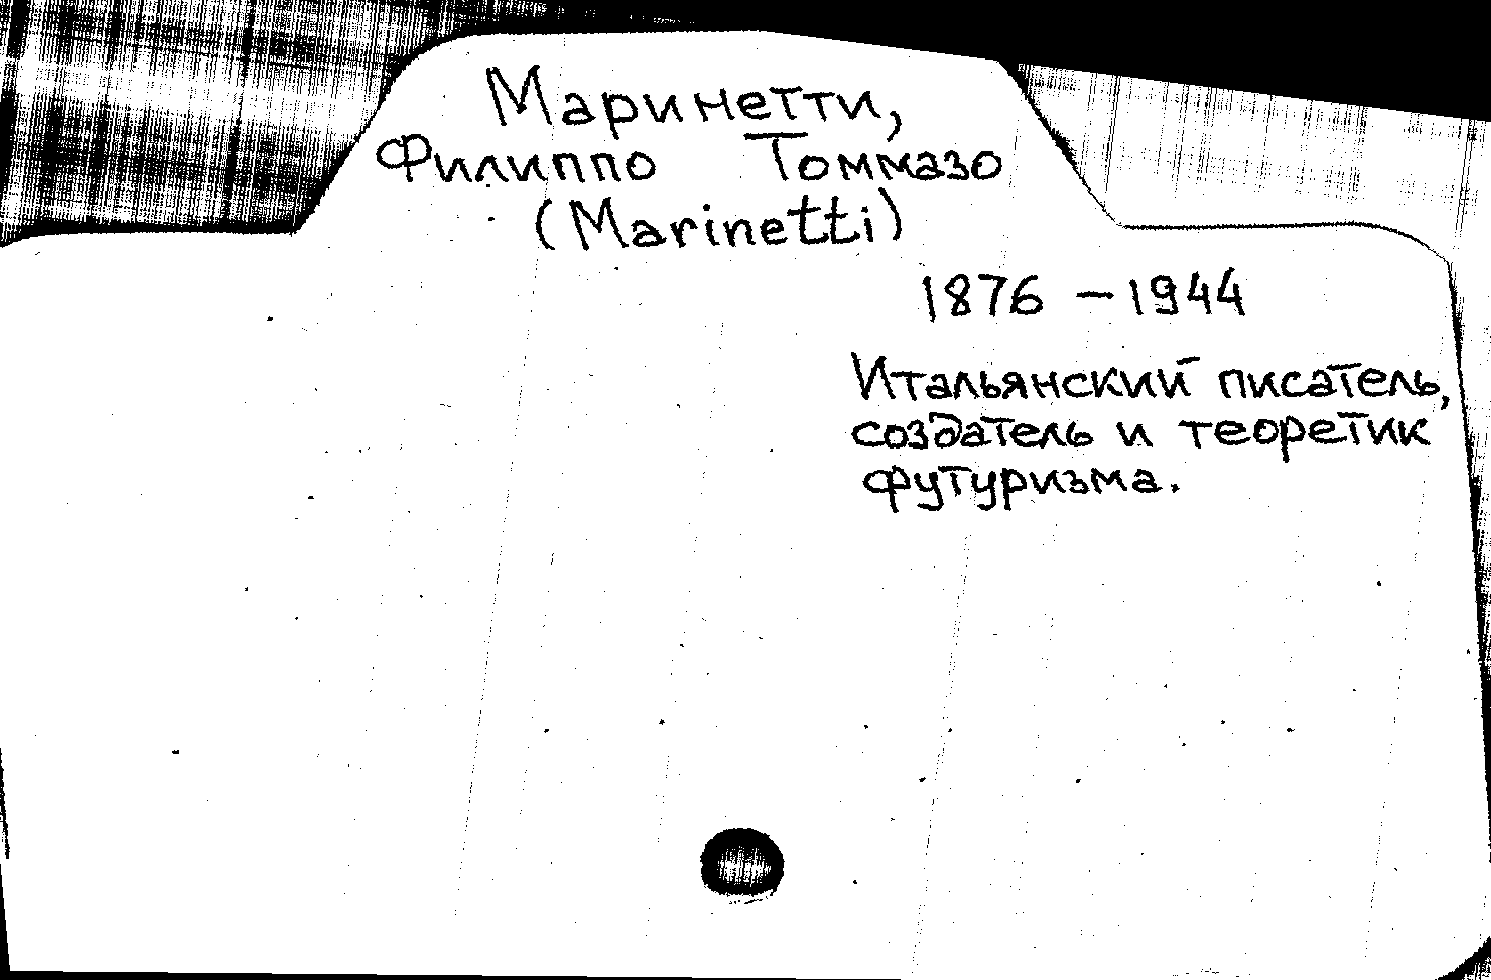 Маринетти,
Филиппо Томмазо
(Marinetti)
1876 – 1944
Итальянский писатель,
создатель и теоретик
футуризма.